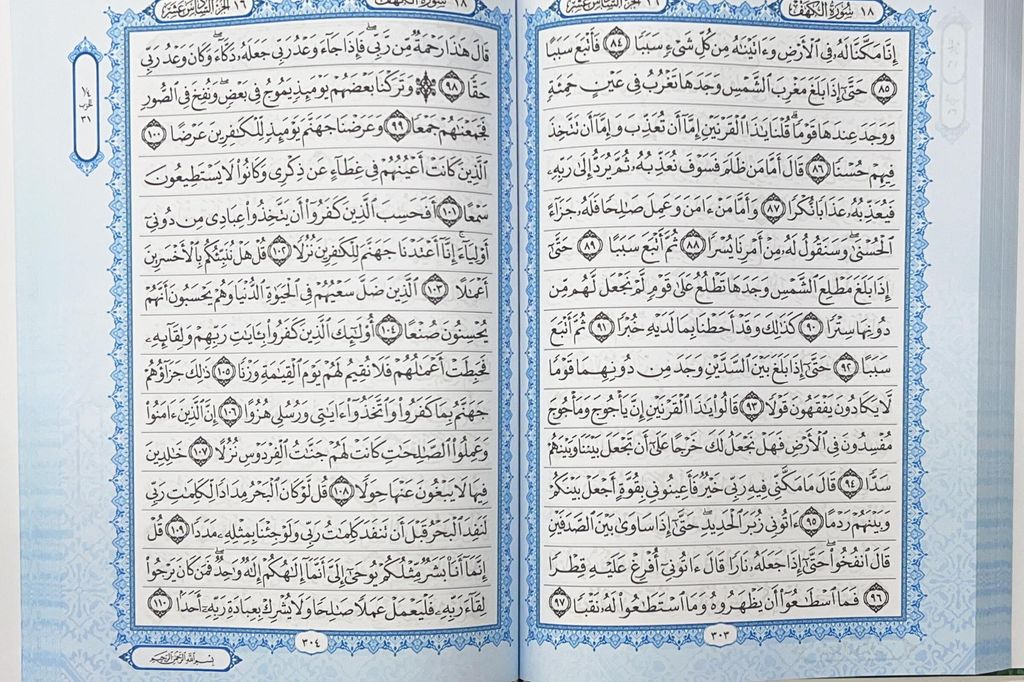 ١٨ سُورَةُ الكَهْفِ
الجُزْءُ السَّادِسَ عَشَرَ ١٦
إِنَّا مَكَّنَّا لَهُۥ فِى ٱلْأَرْضِ وَءَاتَيْنَٰهُ مِن كُلِّ شَىْءٍ سَبَبًا ٨٤ فَأَتْبَعَ سَبَبًا
٨٥ حَتَّىٰٓ إِذَا بَلَغَ مَغْرِبَ ٱلشَّمْسِ وَجَدَهَا تَغْرُبُ فِى عَيْنٍ حَمِئَةٍ
وَوَجَدَ عِندَهَا قَوْمًاۗ قُلْنَا يَٰذَا ٱلْقَرْنَيْنِ إِمَّآ أَن تُعَذِّبَ وَإِمَّآ أَن تَتَّخِذَ
فِيهِمْ حُسْنًا ٨٦ قَالَ أَمَّا مَن ظَلَمَ فَسَوْفَ نُعَذِّبُهُۥ ثُمَّ يُرَدُّ إِلَىٰ رَبِّهِۦ
فَيُعَذِّبُهُۥ عَذَابًا نُّكْرًا ٨٧ وَأَمَّا مَنْ ءَامَنَ وَعَمِلَ صَٰلِحًا فَلَهُۥ جَزَآءً
ٱلْحُسْنَىٰۖ وَسَنَقُولُ لَهُۥ مِنْ أَمْرِنَا يُسْرًا ٨٨ ثُمَّ أَتْبَعَ سَبَبًا ٨٩ حَتَّىٰٓ
إِذَا بَلَغَ مَطْلِعَ ٱلشَّمْسِ وَجَدَهَا تَطْلُعُ عَلَىٰ قَوْمٍ لَّمْ نَجْعَل لَّهُم مِّن
دُونِهَا سِتْرًا ٩٠ كَذَٰلِكَ وَقَدْ أَحَطْنَا بِمَا لَدَيْهِ خُبْرًا ٩١ ثُمَّ أَتْبَعَ
سَبَبًا ٩٢ حَتَّىٰٓ إِذَا بَلَغَ بَيْنَ ٱلسَّدَّيْنِ وَجَدَ مِن دُونِهِمَا قَوْمًا
لَّا يَكَادُونَ يَفْقَهُونَ قَوْلًا ٩٣ قَالُوا۟ يَٰذَا ٱلْقَرْنَيْنِ إِنَّ يَأْجُوجَ وَمَأْجُوجَ
مُفْسِدُونَ فِى ٱلْأَرْضِ فَهَلْ نَجْعَلُ لَكَ خَرْجًا عَلَىٰٓ أَن تَجْعَلَ بَيْنَنَا وَبَيْنَهُمْ
سَدًّا ٩٤ قَالَ مَا مَكَّنِّى فِيهِ رَبِّى خَيْرٌ فَأَعِينُونِى بِقُوَّةٍ أَجْعَلْ بَيْنَكُمْ
وَبَيْنَهُمْ رَدْمًا ٩٥ ءَاتُونِى زُبَرَ ٱلْحَدِيدِۖ حَتَّىٰٓ إِذَا سَاوَىٰ بَيْنَ ٱلصَّدَفَيْنِ
قَالَ ٱنفُخُوا۟ۖ حَتَّىٰٓ إِذَا جَعَلَهُۥ نَارًا قَالَ ءَاتُونِىٓ أُفْرِغْ عَلَيْهِ قِطْرًا
٩٦ فَمَا ٱسْطَٰعُوٓا۟ أَن يَظْهَرُوهُ وَمَا ٱسْتَطَٰعُوا۟ لَهُۥ نَقْبًا ٩٧
٣٠٣
١٨ سُورَةُ الكَهْفِ
الجُزْءُ السَّادِسَ عَشَرَ ١٦
قَالَ هَٰذَا رَحْمَةٌ مِّن رَّبِّىۖ فَإِذَا جَآءَ وَعْدُ رَبِّى جَعَلَهُۥ دَكَّآءَۖ وَكَانَ وَعْدُ رَبِّى
حَقًّا ٩٨ ۞ وَتَرَكْنَا بَعْضَهُمْ يَوْمَئِذٍ يَمُوجُ فِى بَعْضٍۖ وَنُفِخَ فِى ٱلصُّورِ
فَجَمَعْنَٰهُمْ جَمْعًا ٩٩ وَعَرَضْنَا جَهَنَّمَ يَوْمَئِذٍ لِّلْكَٰفِرِينَ عَرْضًا ١٠٠
ٱلَّذِينَ كَانَتْ أَعْيُنُهُمْ فِى غِطَآءٍ عَن ذِكْرِى وَكَانُوا۟ لَا يَسْتَطِيعُونَ
سَمْعًا ١٠١ أَفَحَسِبَ ٱلَّذِينَ كَفَرُوٓا۟ أَن يَتَّخِذُوا۟ عِبَادِى مِن دُونِىٓ
أَوْلِيَآءَۚ إِنَّآ أَعْتَدْنَا جَهَنَّمَ لِلْكَٰفِرِينَ نُزُلًا ١٠٢ قُلْ هَلْ نُنَبِّئُكُم بِٱلْأَخْسَرِينَ
أَعْمَٰلًا ١٠٣ ٱلَّذِينَ ضَلَّ سَعْيُهُمْ فِى ٱلْحَيَوٰةِ ٱلدُّنْيَا وَهُمْ يَحْسَبُونَ أَنَّهُمْ
يُحْسِنُونَ صُنْعًا ١٠٤ أُو۟لَٰٓئِكَ ٱلَّذِينَ كَفَرُوا۟ بِـَٔايَٰتِ رَبِّهِمْ وَلِقَآئِهِۦ
فَحَبِطَتْ أَعْمَٰلُهُمْ فَلَا نُقِيمُ لَهُمْ يَوْمَ ٱلْقِيَٰمَةِ وَزْنًا ١٠٥ ذَٰلِكَ جَزَآؤُهُمْ
جَهَنَّمُ بِمَا كَفَرُوا۟ وَٱتَّخَذُوٓا۟ ءَايَٰتِى وَرُسُلِى هُزُوًا ١٠٦ إِنَّ ٱلَّذِينَ ءَامَنُوا۟
وَعَمِلُوا۟ ٱلصَّٰلِحَٰتِ كَانَتْ لَهُمْ جَنَّٰتُ ٱلْفِرْدَوْسِ نُزُلًا ١٠٧ خَٰلِدِينَ
فِيهَا لَا يَبْغُونَ عَنْهَا حِوَلًا ١٠٨ قُل لَّوْ كَانَ ٱلْبَحْرُ مِدَادًا لِّكَلِمَٰتِ رَبِّى
لَنَفِدَ ٱلْبَحْرُ قَبْلَ أَن تَنفَدَ كَلِمَٰتُ رَبِّى وَلَوْ جِئْنَا بِمِثْلِهِۦ مَدَدًا ١٠٩ قُلْ
إِنَّمَآ أَنَا۠ بَشَرٌ مِّثْلُكُمْ يُوحَىٰٓ إِلَىَّ أَنَّمَآ إِلَٰهُكُمْ إِلَٰهٌ وَٰحِدٌۖ فَمَن كَانَ يَرْجُوا۟
لِقَآءَ رَبِّهِۦ فَلْيَعْمَلْ عَمَلًا صَٰلِحًا وَلَا يُشْرِكْ بِعِبَادَةِ رَبِّهِۦٓ أَحَدًۢا ١١٠
٣٠٤
بِسْمِ اللَّهِ الرَّحْمَٰنِ الرَّحِيمِ
الحزب
٣١